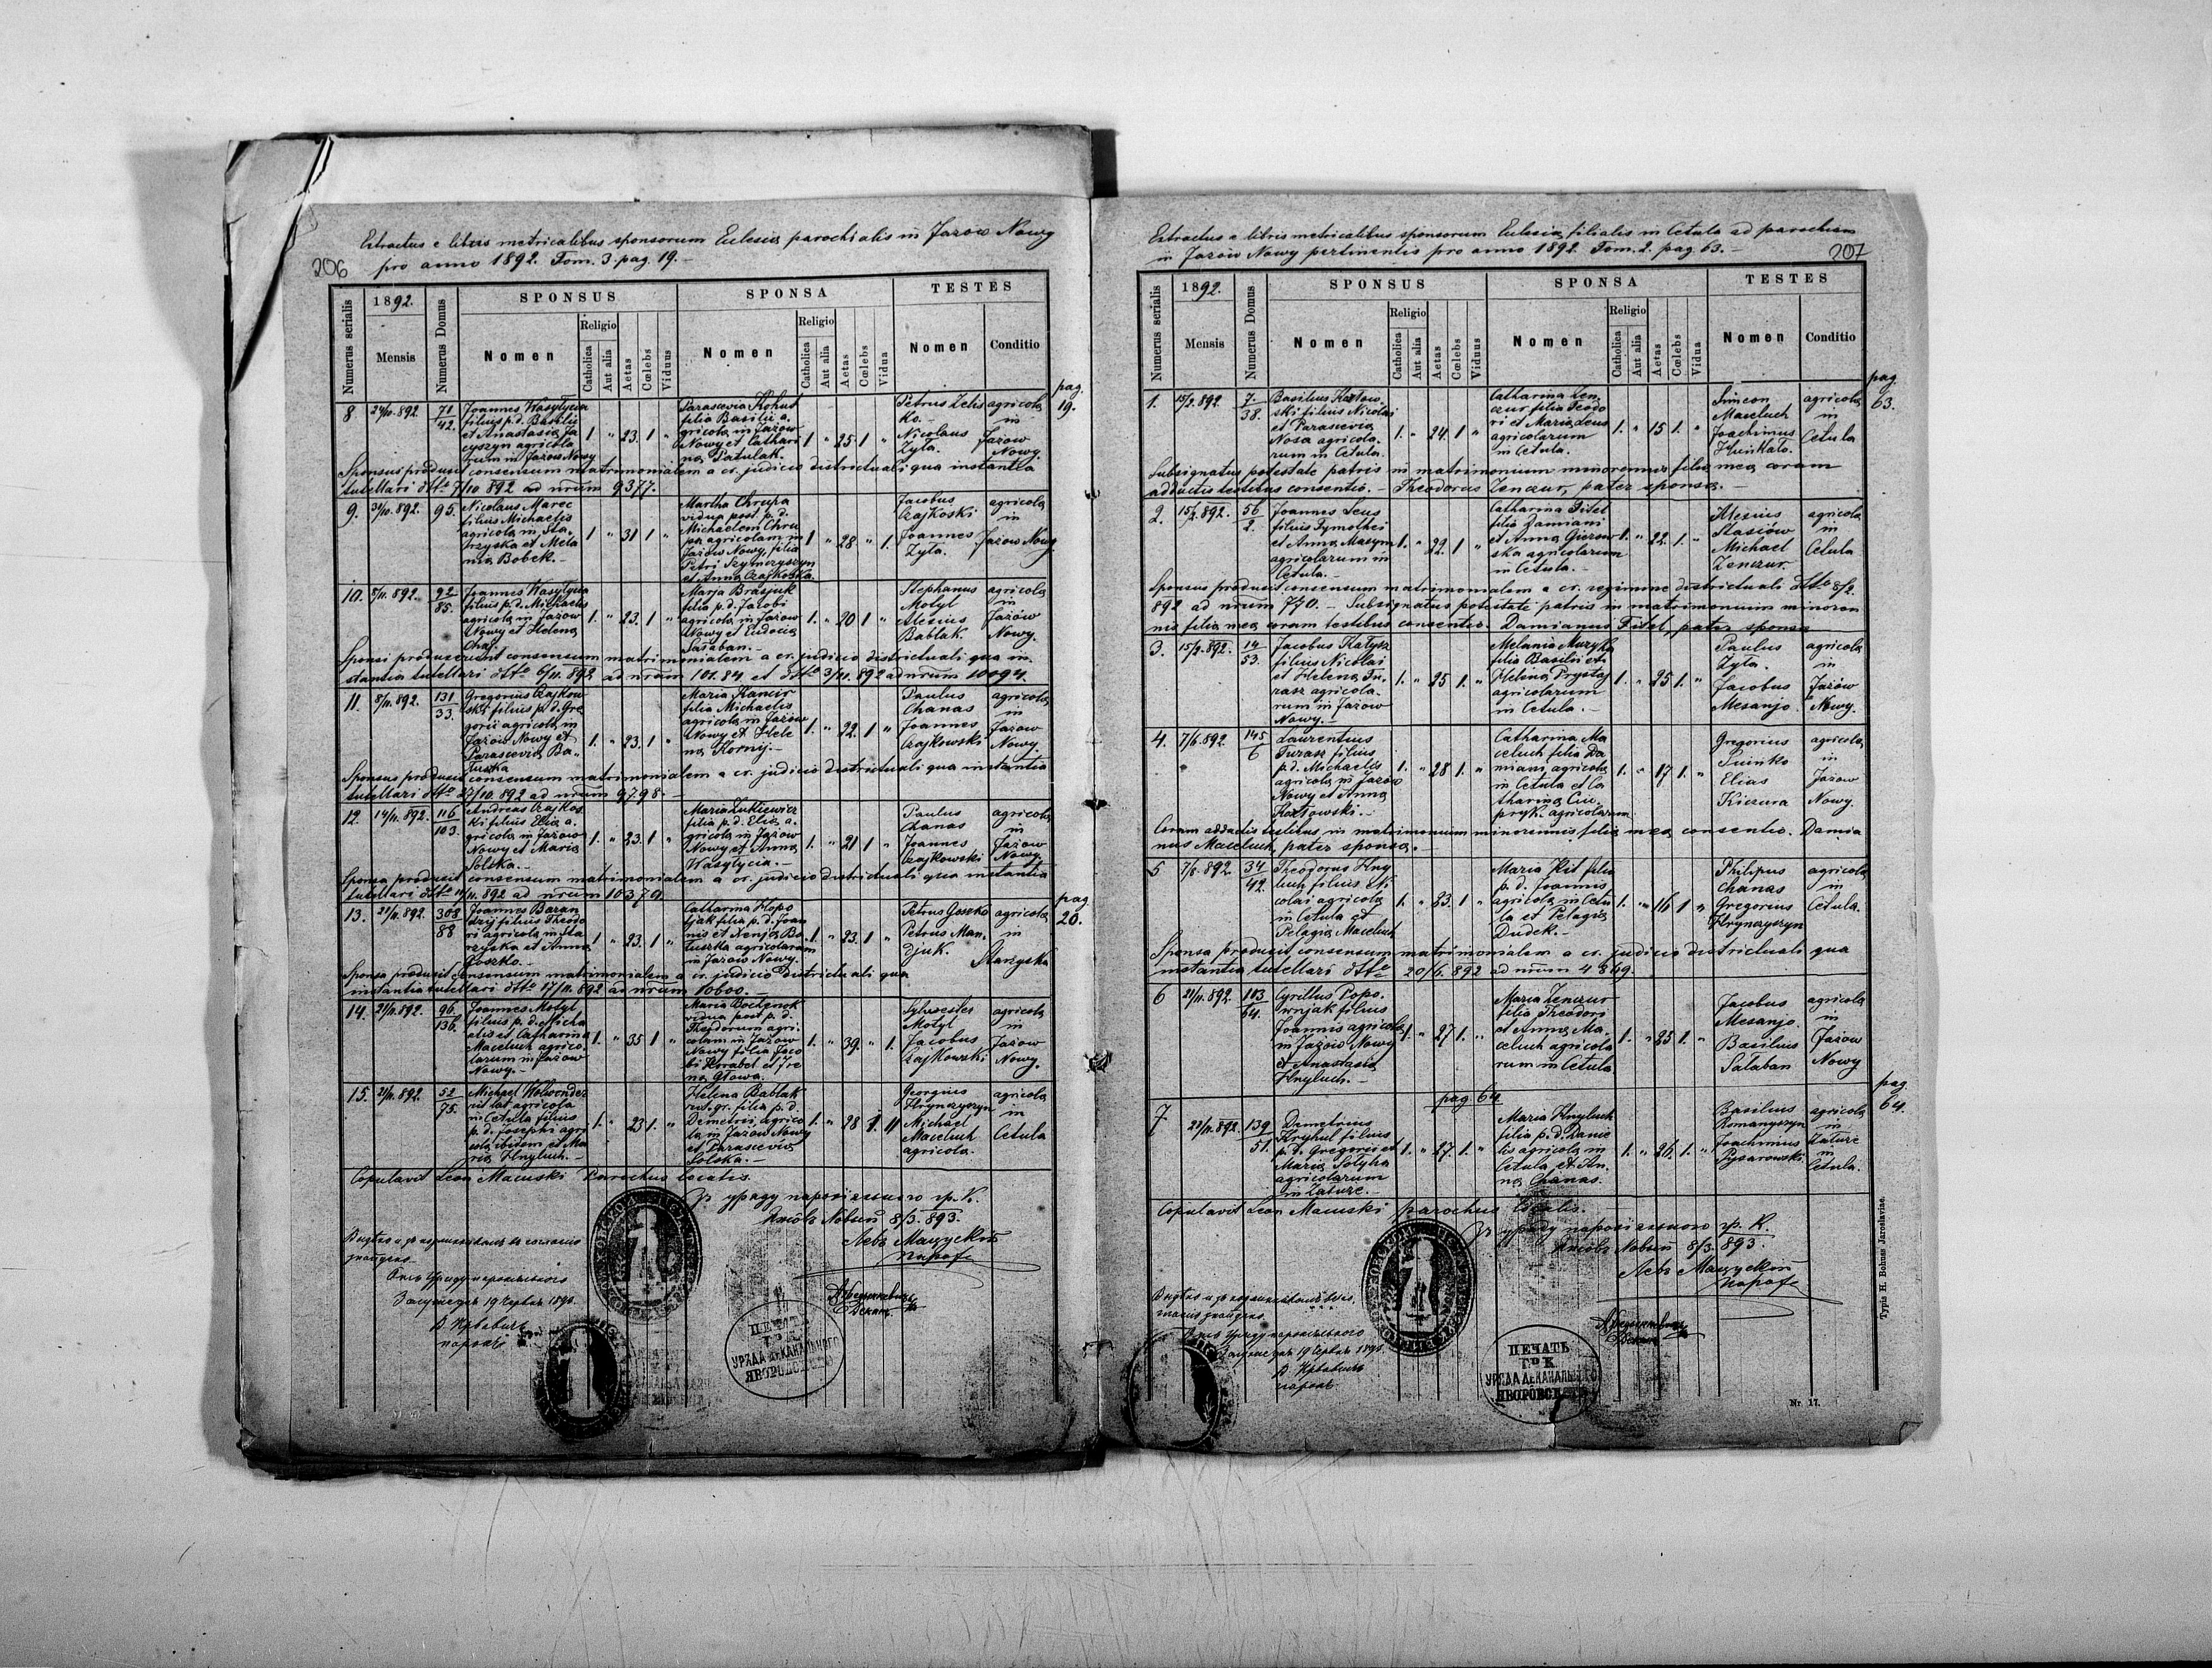 206
Extractus e libris metricalibus sponsorum Eclesiæ parochialis in Jazów Nowy
pro anno 1892. Tom. 3. pag. 19. –
Numerus serialis
1892.
Mensis
Numerus Domus
SPONSUS
Nomen
Religio
Catholica
Aut alia
Aetas
Cœlebs
Viduus
SPONSA
Nomen
Religio
Catholica
Aut alia
Aetas
Cœlebs
Vidua
TESTES
Nomen
Conditio
pag.
19.
8 24/10. 892. 71/42.
Joannes Wasylycia
filius p. d. Basilii
et Anastasia
agricola
rum in Jazów Nowy
1 " 23. 1 "
Parascevia Kohut
filia Basilii a.
gricola in Jazów
Nowy et Cathari
na Patulak.
1 " 25 1 "
Petrus Zelis
ko.
Nicolaus
Zyla.
agricola
in
Jazow
Nowy.
Sponsus produxit consensum matrimonialem a cr. judicio districtuali qua instantia
tutellari dtto 7/10 892 ad nrum 9377.
9. 892. 95.
Nicolaus Marec
filius Michaelis
agricola in Sta.
rzyska et Mela
nia Bobek. –
1 " 31 1 "
Martha Chrupa
vidua post p. d.
Michaelem Chru
pa agricolam in
Jazów Nowy, filia
Petri Szymczyszyn
et Anna Czajkoska.
1 " 28 " 1.
Jacobus
Czajkoski
Joannes
Zyla.
agricola
in
Jazow Nowy.
10. 8/11. 892. 92/85.
Joannes Wasylycia
filius p. d. Michaelis
agricola in Jazów
Nowy et Helena
Chaj.
1. " 23. 1 "
Marja Brasjuk
filia p. d. Jacobi
agricola in Jazów
Nowy et Eudocia
Saraban. –
1. " 20 1 "
Stephanus
Motyl
Alexius
Bablak.
agricola
in
Jazów
Nowy.
Sponsi produxerunt consensum matrimonialem a cr. judicio districtuali qua in.
stantia tutellari dtto 6/11. 892 ad nrum 101.84 et dtto 3/11. 892 ad nrum 10094.
11. 8/11. 892. 131/33.
Gregorius Czajkow
ski filius p. d. Gre
gorii agricola in
Jazów Nowy et
Parascevia Ba.
luszka
1. " 23. 1 "
Maria Kancir
filia Michaelis
agricola in Jazów
Nowy et Hele
na Kornij. –
1. " 22. 1 "
Paulus
Chanas
Joannes
Czajkowski
agricola
in
Jazow
Nowy.
Sponsus produxit consensum matrimonialem a cr. judicio districtuali qua instantia
tutellari dtto 27/10. 892 ad nrum 9798. –
12. 14/11. 892. 116/103.
Andreas Czajkos
ki filius Elia a.
gricola in Jazow
Nowy et Maria
Solska. –
1. " 23. 1 "
Maria Lukiewicz
filia p. d. Elia a.
gricola in Jazow
Nowy et Anna
Wasylycia. –
1. " 21 1 "
Paulus
Chanas
Joannes
Czajkowski
agricola
in
Jazow
Nowy.
Sponsa produxit consensum matrimonialem a cr. judicio districtuali qua instantia
tutellari dtto 11/11. 892 ad nrum 10379.
pag
20.
13. 21/11. 892. 308/88
Joannes Baran
filius Theodo
ri agricola in Sta
rzyska et Anna
Goszko. –
1 " 23. 1 "
Catharina Hopo
tjak filia p. d. Joan
nis et Xenja Ba
tuszka agricolarum
in Jazów Nowy.
1. " 23. 1 "
Petrus Goszko
Petrus Man.
djuk.
agricola
in
Starzyska
Sponsa produxit consensum matrimonialem a cr. judicio districtuali qua
instantia tutellari dtto 17/11. 892 ad nrum 10600. –
14. 21/11. 892. 96/136.
Joannes Motyl
filius p. d. Micha
elis et Catharina
Maceluch agrico.
larum in Jazow
Nowy. –
1. " 35 1 "
Maria
vidua post p. d.
Theodorum agri.
colam in Jazow
Nowy filia Jaco
bi Korabel et Ire
na Głowa.
1. " 39. " 1.
Sylvester
Motyl
Jacobus
Czajkowski
agricola
in
Jazow
Nowy.
15. 21/11. 892. 52/75.
Michael
rit. lat. agricola
in Cetula filius
p. d. Josephi agri
cola ibidem et Ma
ria Hnyluch. –
1. " 23 1. "
Helena Bablak
rit. gr. filia p. d.
Demetrii, agrico
la in Jazow Nowy
et Parascevia
Solska. –
1. " 28 1. 11
Georgius
Hrynczyszyn
Michael
Maceluch
agricola.
agricola
in
Cetula
Copulavit Leon Macuski Parochus localis.
Зъ уряду парохіяльного гр. К.
Язовъ Новый 8/3. 893.
Левъ Мацускій
парох
ПЕЧАТЬ
ГР. К.
УРЯДА ДЕКАНАЛЬНОГО
ЯВОРОВСКОГО
207
Extractus e libris metricalibus sponsorum Eclesiæ filialis in Cetula ad parochiam
in Jazów Nowy pertinentis pro anno 1892. Tom. 2. pag. 63. –
Numerus serialis
1892.
Mensis
Numerus Domus
SPONSUS
Nomen
Religio
Catholica
Aut alia
Aetas
Cœlebs
Viduus
SPONSA
Nomen
Religio
Catholica
Aut alia
Aetas
Cœlebs
Vidua
TESTES
Nomen
Conditio
pag.
63.
1. 15/2. 892. 7/38.
Basilius Kozłow.
ski filius Nicolai
et Parascevia
Nosa agricola.
rum in Cetula.
1. " 24. 1 "
Catharina Zen.
czur filia Teodo
ri et Maria Leus
agricolarum
in Cetula.
1. " 15 1. "
Simeon
Maceluch
Joachimus
agricola
in
Cetula
Subsignatus potestate patris in matrimonium minorennis filiæ meæ coram
adductis testibus consentio. – Theodorus Zenczur, pater sponsæ. –
2. 15/2. 892. 56/2.
Joannes Leus
filius Tymothei
et Anna Maxym
agricolarum in
Cetula. –
1. " 22. 1 "
Catharina Fitel
filia Damiani
et Anna
ska agricolarum
in Cetula. –
1. " 22. 1. "
Alexius
Stasiów
Michael
Zenczur.
agricola
in
Cetula
Sponsus produxit consensum matrimonialem a cr. regimine districtuali dtto 8/2.
892 ad nrum 770. – Subsignatus potestate patris in matrimonium minoren
nis filiæ meæ coram testibus consentio. Damianus Fitel, pater sponsæ
3. 15/2. 892. 14/53.
Jacobus Kalysz
filius Nicolai
et Helena Tu.
rasz agricola.
rum in Jazow
Nowy. –
1. " 25 1. "
Melania Muzyka
filia Basilii et
Helena Prystaj
agricolarum
in Cetula. –
1. " 25 1. "
Paulus
Zyla.
Jacobus
Mesanjo.
agricola
in
Jazów
Nowy.
4. 7/6. 892. 145/6
Laurentius
Turasz filius
p. d. Michaelis
agricola in Jazow
Nowy et Anna
Kozłowski. –
1. " 28 1. "
Catharina Ma
celuch filia Da
miani agricola
in Cetula et Ca
tharina Ciu.
pryk agricolarum
1. " 17 1. "
Gregorius
Elias
Kiczura
agricola
in
Jazow
Nowy.
Coram adductis testibus in matrimonium minorennis filiæ meæ consentio. Damia
nus Maceluch, pater sponsæ. –
5 7/8. 892. 34/42.
Theodorus Hny
luch filius Ni
colai agricola
in Cetula et
Pelagia Maceluch
1. " 23. 1 "
Maria Kit filia
p. d. Joannis
agricola in Cetu
la et Pelagia
Dudek. –
1. " 16 1 "
Philipus
Chanas
Gregorius
Hrynczyszyn
agricola
in
Cetula.
Sponsa produxit consensum matrimonialem a cr. judicio districtuali qua
instantia tutellari dtto 20/6. 892 ad nrum 4869.
6 21/11. 892. 103/64.
Cyrillus Popo.
wnjak filius
Joannis agricola
in Jazow Nowy
et Anastasia
Hnyluch. –
1. " 27 1. "
Maria Zenczur
filia Theodori
et Anna Ma.
celuch agricola
rum in Cetula
1. " 25 1. "
Jacobus
Mesanjo.
Basilius
Salaban
agricola
in
Jazow
Nowy
pag 64
pag.
64.
7 22/11. 892. 139/51.
Demetrius
Kryhul filius
p. d. Gregorii et
Maria Sotyha
agricolarum
in Zaluze. –
1. " 27. 1. "
Maria Hnyluch
filia p. d. Danie
lis agricola in
Cetula et An.
na Chanas.
1. " 26. 1. "
Basilius
Romanyszyn
Joachimus
Pysarowski.
agricola
in
Zaluze
in
Cetula.
Copulavit Leon Macuski parochus localis.
Зъ уряду парохіяльного гр. К.
Язовъ Новый 8/3. 893.
Левъ Мацускій
парох
ПЕЧАТЬ
ГР. К.
УРЯДА ДЕКАНАЛЬНОГО
ЯВОРОВСКОГО
Nr. 17.
Typis H. Bohuss Jaroslaviae.